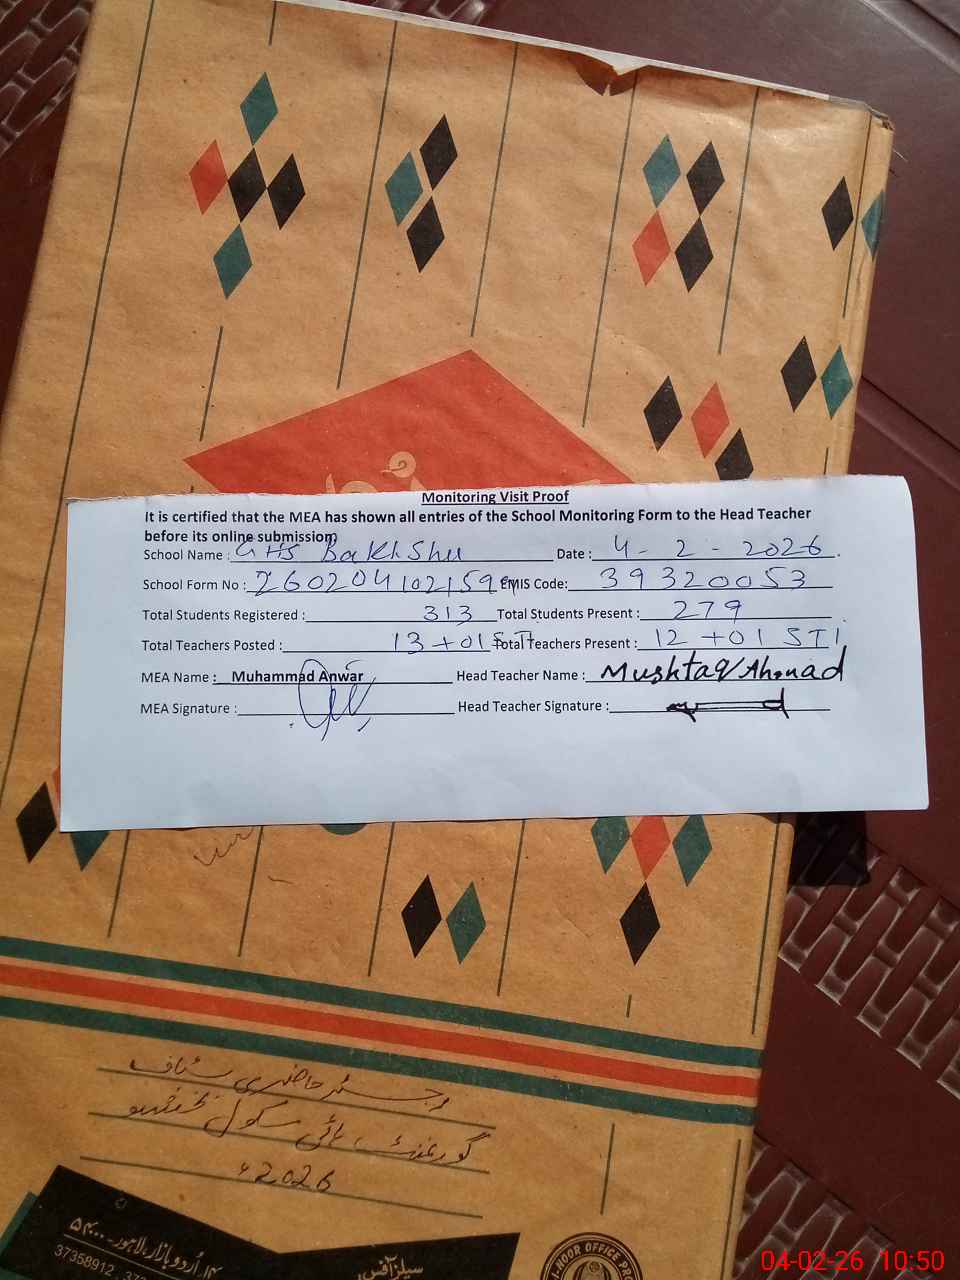 Monitoring Visit Proof
It is certified that the MEA has shown all entries of the School Monitoring Form to the Head Teacher
before its online submission.
School Name : GHS BakhShu Date : 4 - 2 - 2026.
School Form No : EMIS Code: 39320053
Total Students Registered : 313 Total Students Present : 279
Total Teachers Posted : 13 + 01 STI Total Teachers Present : 12 + 01 STI
MEA Name : Muhammad Anwar Head Teacher Name : Mushtaq Ahmad
MEA Signature : Head Teacher Signature :
رجسٹر حاضری سٹاف
گورنمنٹ ہائی سکول بخشو
2026ء
اُردو بازار، لاہور۔
37358912
سیلز آفس
OFFICE
04-02-26 10:50